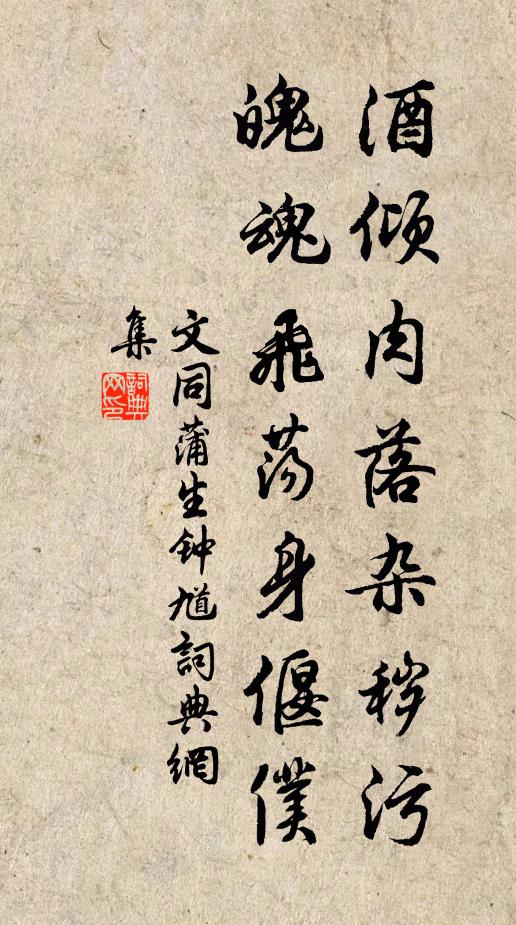 酒倾肉落杂秽污
魄魂飛荡身偃僕
文同蒲生钟馗詞典網
集
詞典网印